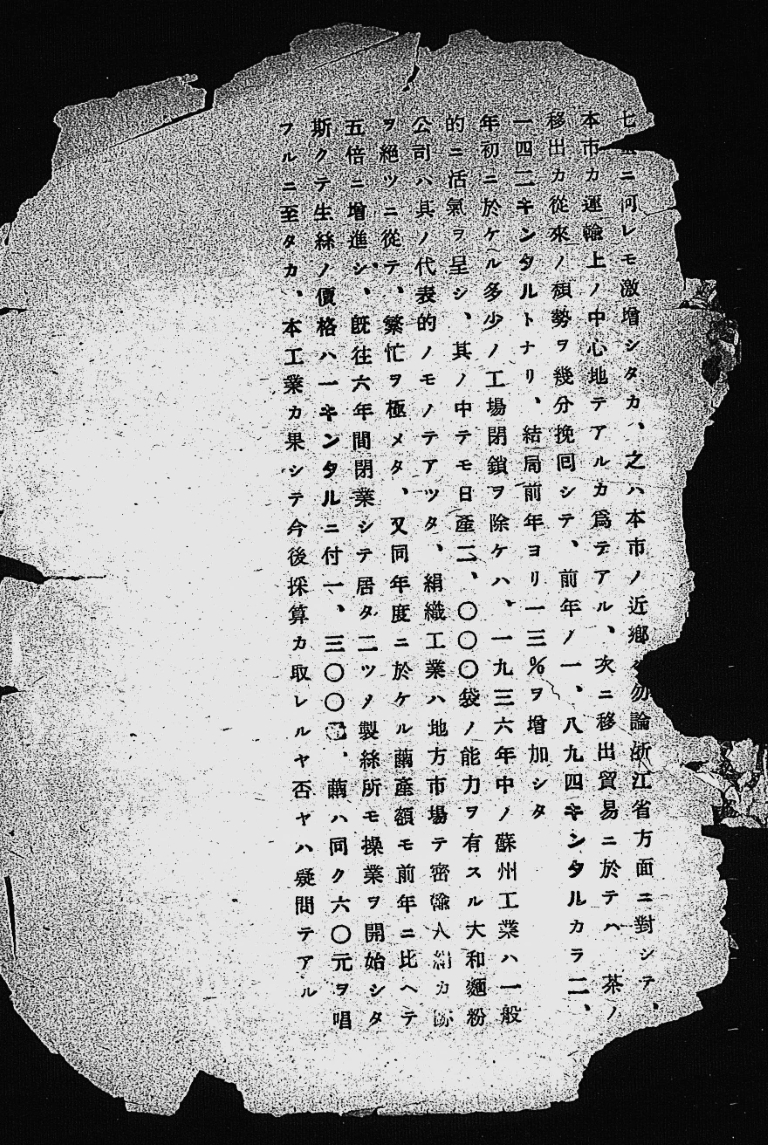 七 ニ何レモ激増シタカ、之ハ本市ノ近郷 勿論浙江省方面ニ對シテ、
本市カ運輸上ノ中心地テアルカ爲テアル、次ニ移出貿易ニ於テハ 茶ノ
移出カ從來ノ頽勢ヲ幾分挽囘シテ、前年ノ一、八九四キンタルカラ二、
一四二キンタルトナリ、結局前年ヨリ一三%ヲ增加シタ
年初ニ於ケル多少ノ工場閉鎖ヲ除ケハ、一九三六年中ノ蘇州工業ハ一般
的ニ活氣ヲ呈シ、其ノ中テモ日產二、〇〇〇袋ノ能力ヲ有スル大和麵粉
公司ハ其ノ代表的ノモノテアツタ、絹織工業ハ地方市場テ密輸人絹カ跡
ヲ絶ツニ從テ、繁忙ヲ極メタ、又同年度ニ於ケル繭產額モ前年ニ比ヘテ
五倍ニ增進シ、既往六年間閉業シテ居タ二ツノ製絲所モ操業ヲ開始シタ
斯クテ生絲ノ價格ハ一キンタルニ付一、三〇〇元、繭ハ同ク六〇元ヲ唱
フルニ至タカ、本工業カ果シテ今後採算カ取レルヤ否ヤハ疑問テアル